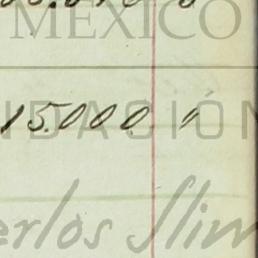 MÉXICO
15.000 "
FUNDACIÓN
Carlos Slim